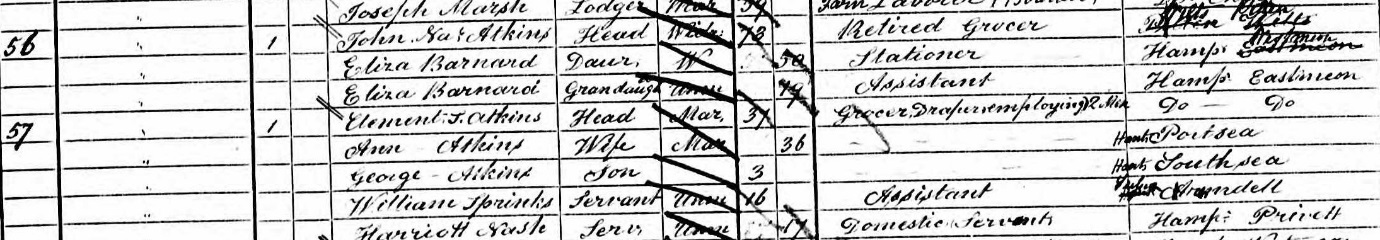 Joseph Marsh Lodger Mar 54
56 " 1 John Nas Atkins Head Widr 78 Retired Grocer Wilts
" Eliza Barnard Daur W 50 Stationer Hamps Eastmeon
" Eliza Barnard Grandaugh Unm 19 Assistant Hamps Eastmeon
57 " 1 Clement J. Atkins Head Mar 37 Grocer, Draper employing 2 Men Do — Do
" Ann Atkins Wife Mar 36 Hants Portsea
" George Atkins Son 3 Hants Southsea
" William Sprinks Servant Unm 16 Assistant Arundell
Harriott Nash Serv Unm 17 Domestic Servant Hamps Privett